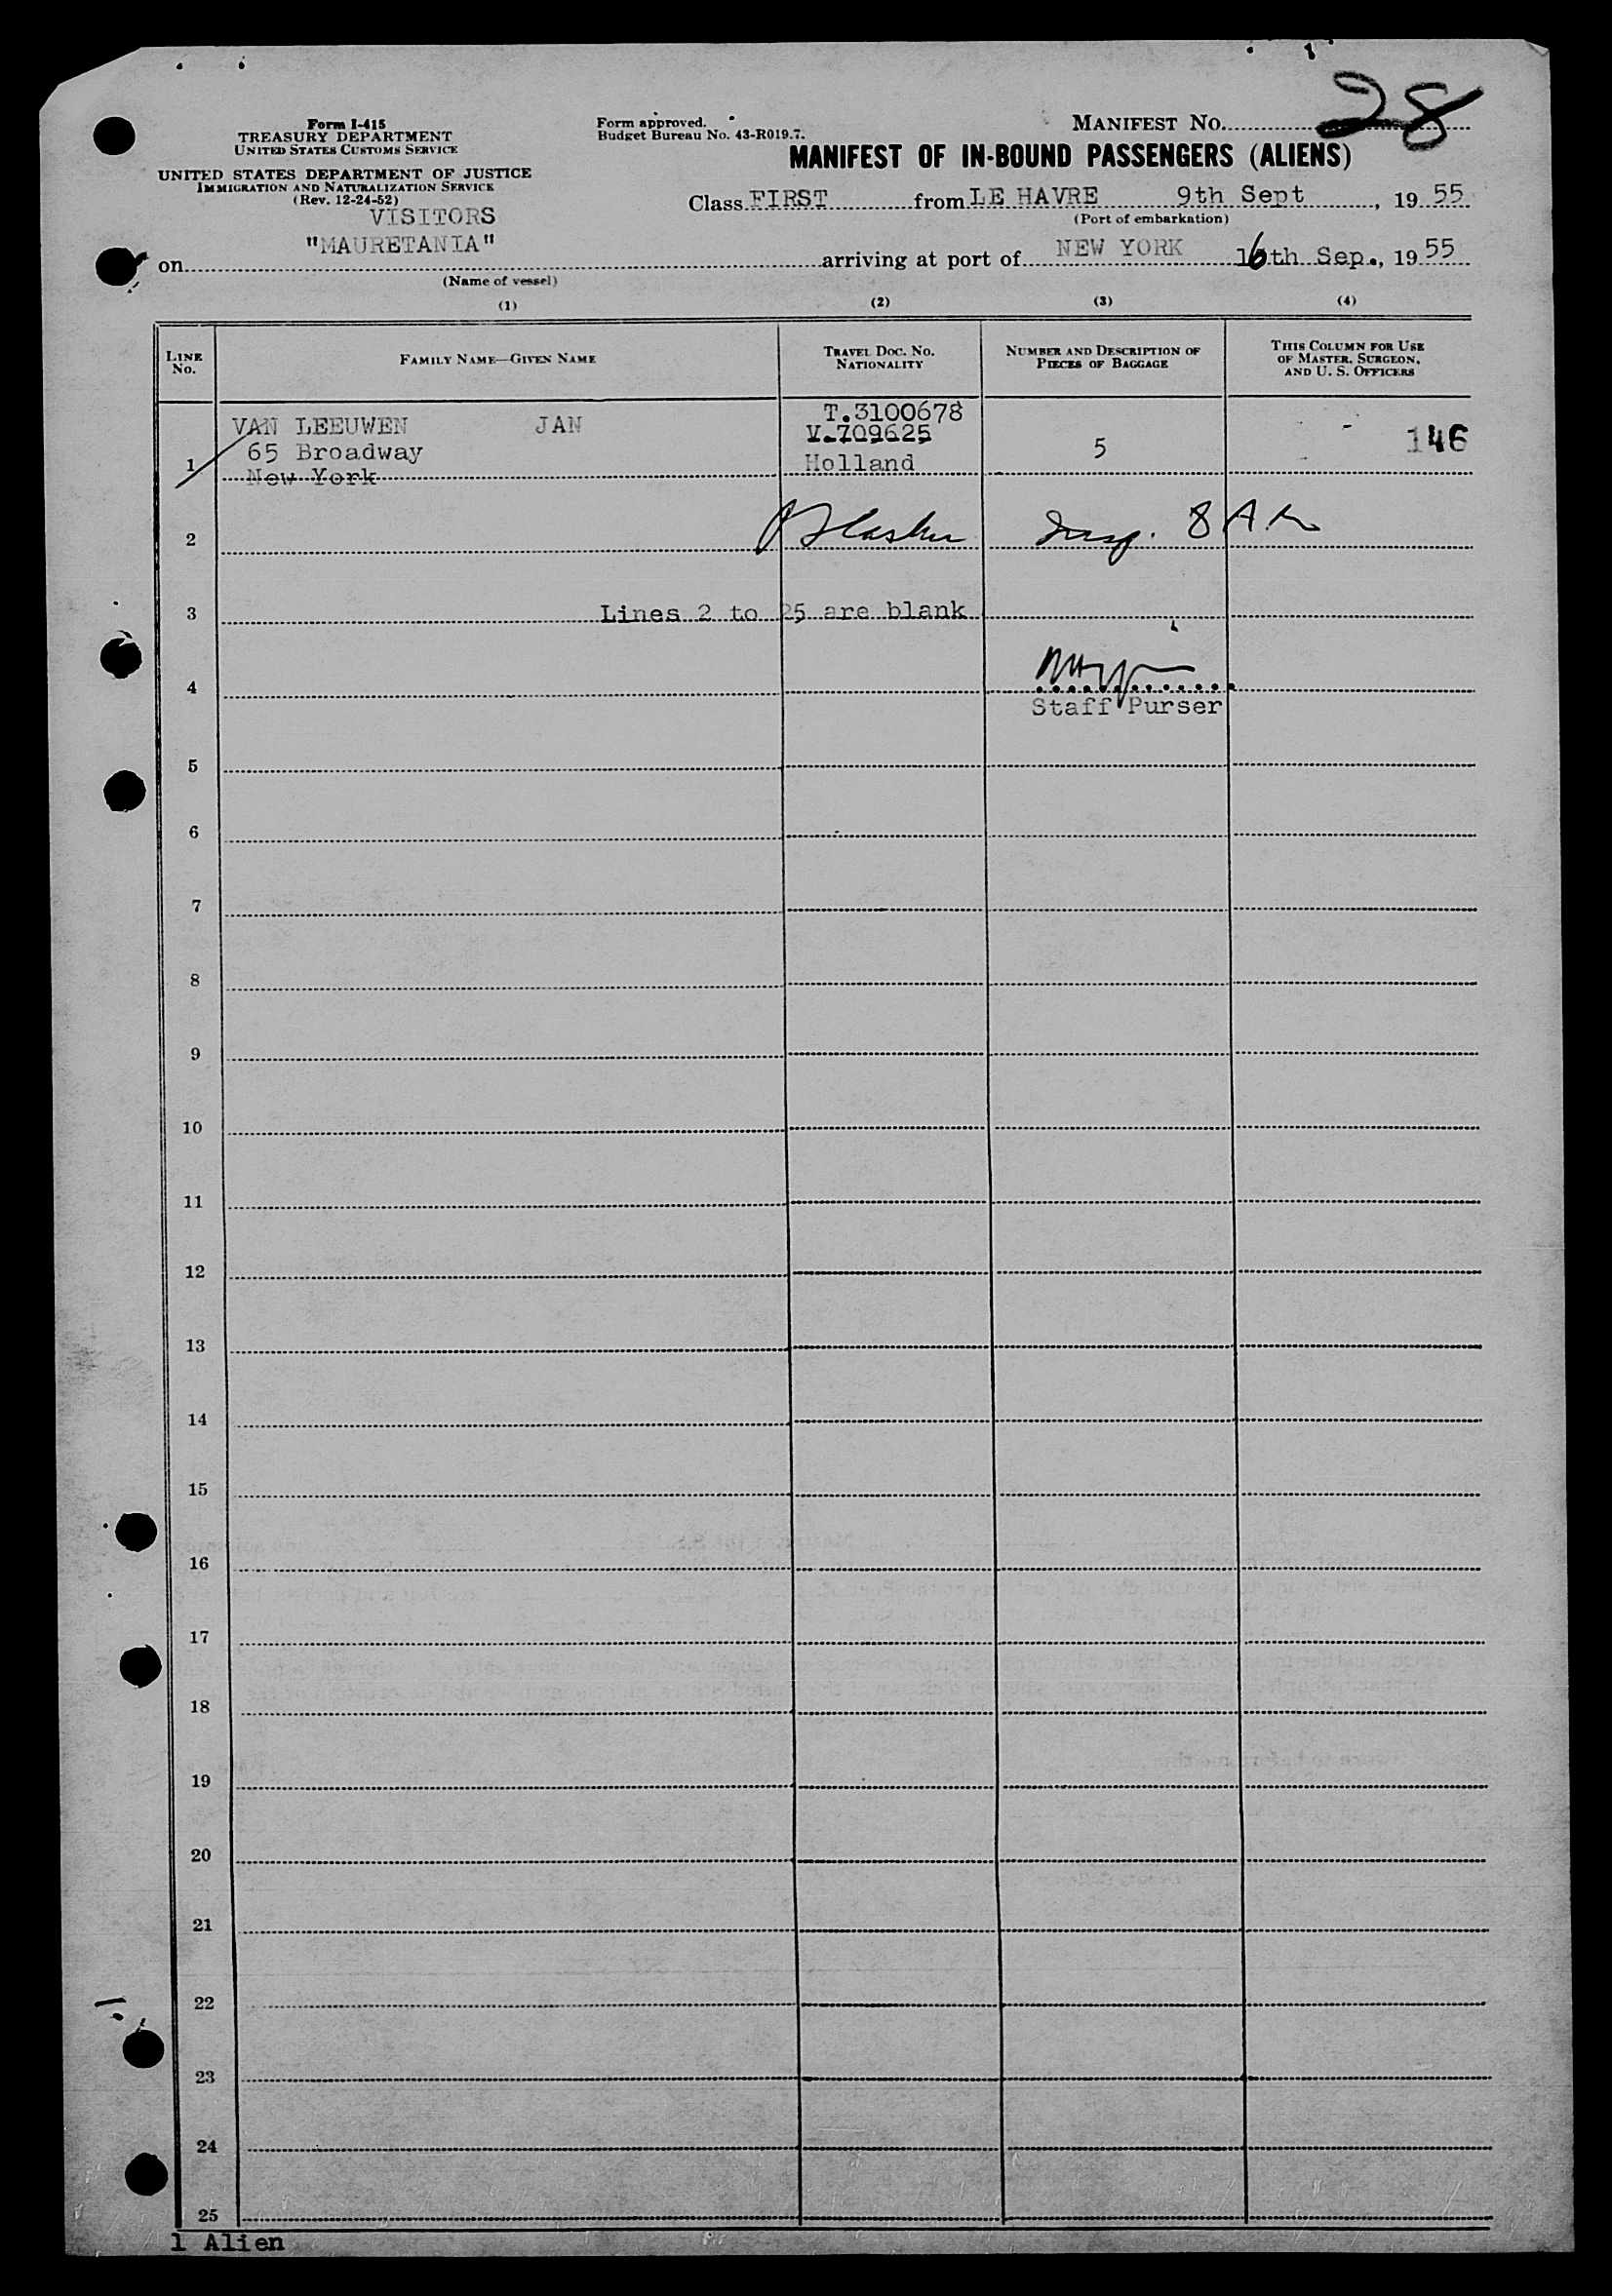 Form I-415
TREASURY DEPARTMENT
UNITED STATES CUSTOMS SERVICE
UNITED STATES DEPARTMENT OF JUSTICE
IMMIGRATION AND NATURALIZATION SERVICE
(Rev. 12-24-52)
VISITORS
Form approved.
Budget Bureau No. 43-R019.7.
MANIFEST NO. 28
MANIFEST OF IN-BOUND PASSENGERS (ALIENS)
Class FIRST from LE HAVRE 9th Sept, 1955
(Port of embarkation)
on "MAURETANIA" arriving at port of NEW YORK 16th Sep., 1955
(Name of vessel)
(1) (2) (3) (4)
LINE NO. FAMILY NAME—GIVEN NAME TRAVEL DOC. NO. NATIONALITY NUMBER AND DESCRIPTION OF PIECES OF BAGGAGE THIS COLUMN FOR USE OF MASTER, SURGEON, AND U. S. OFFICERS
T.3100678
VAN LEEUWEN JAN V-709625 146
1 65 Broadway Holland 5
New York
2 Insp. 8 A.M
3 Lines 2 to 25 are blank
4
Staff Purser
5
6
7
8
9
10
11
12
13
14
15
16
17
18
19
20
21
22
23
24
25
1 Alien